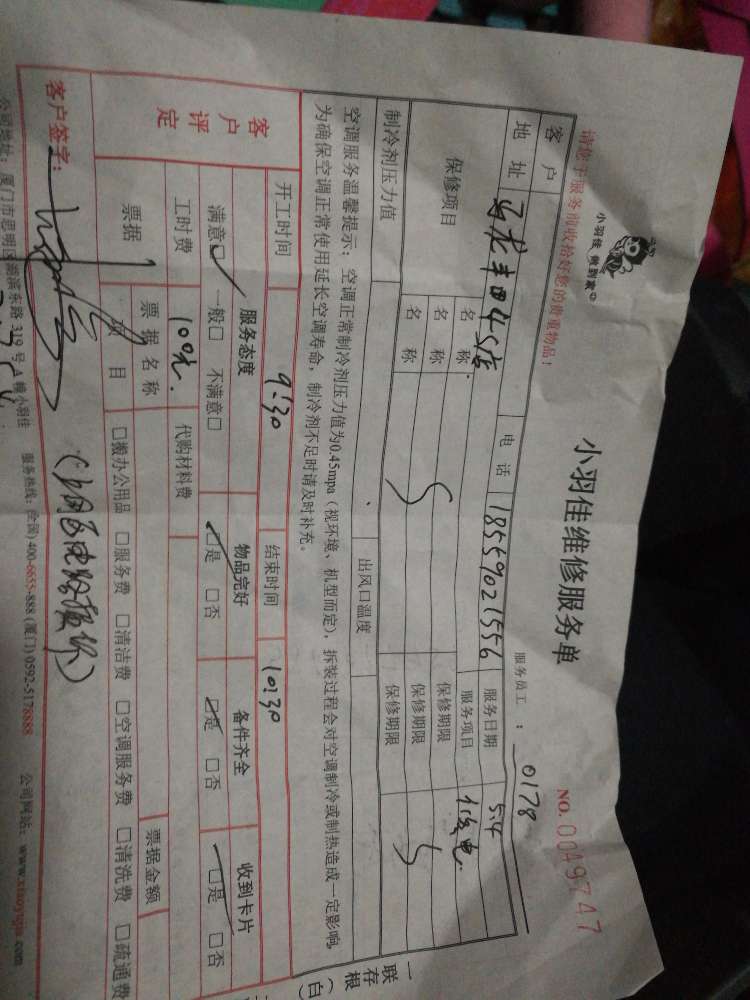 小羽佳 做到家
小羽佳维修服务单
NO.0049747
请您于服务前收拾好您的贵重物品!
服务员工 : 0178
客户
电话 18559021556 服务日期 5.4
地址 丰田4S店 服务项目 修电
保修项目 名称 保修期限
名称 保修期限
名称 保修期限
制冷剂压力值 出风口温度
空调服务温馨提示:空调正常制冷剂压力值为0.45mpa(视环境、机型而定),拆装过程会对空调制冷或制热造成一定影响,
为确保空调正常使用延长空调寿命,制冷剂不足时请及时补充。
开工时间 9:30 结束时间 10:30
客户评定
服务态度 物品完好 备件齐全 收到卡片
满意□ 一般□ 不满意□ □是 □否 □是 □否 □是 □否
工时费 100元. 代购材料费
票据 票据名称 票据金额
项目 □搬办公用品 □服务费 □清洁费 □空调服务费 □清洗费 □疏通费
客户签字:
公司地址:厦门市思明区湖滨东路319号A幢小羽佳 服务热线:(全国)400-6655-888 (厦门)0592-5178888 公司网站:www.xiaoyujia.com
一联存根(白)